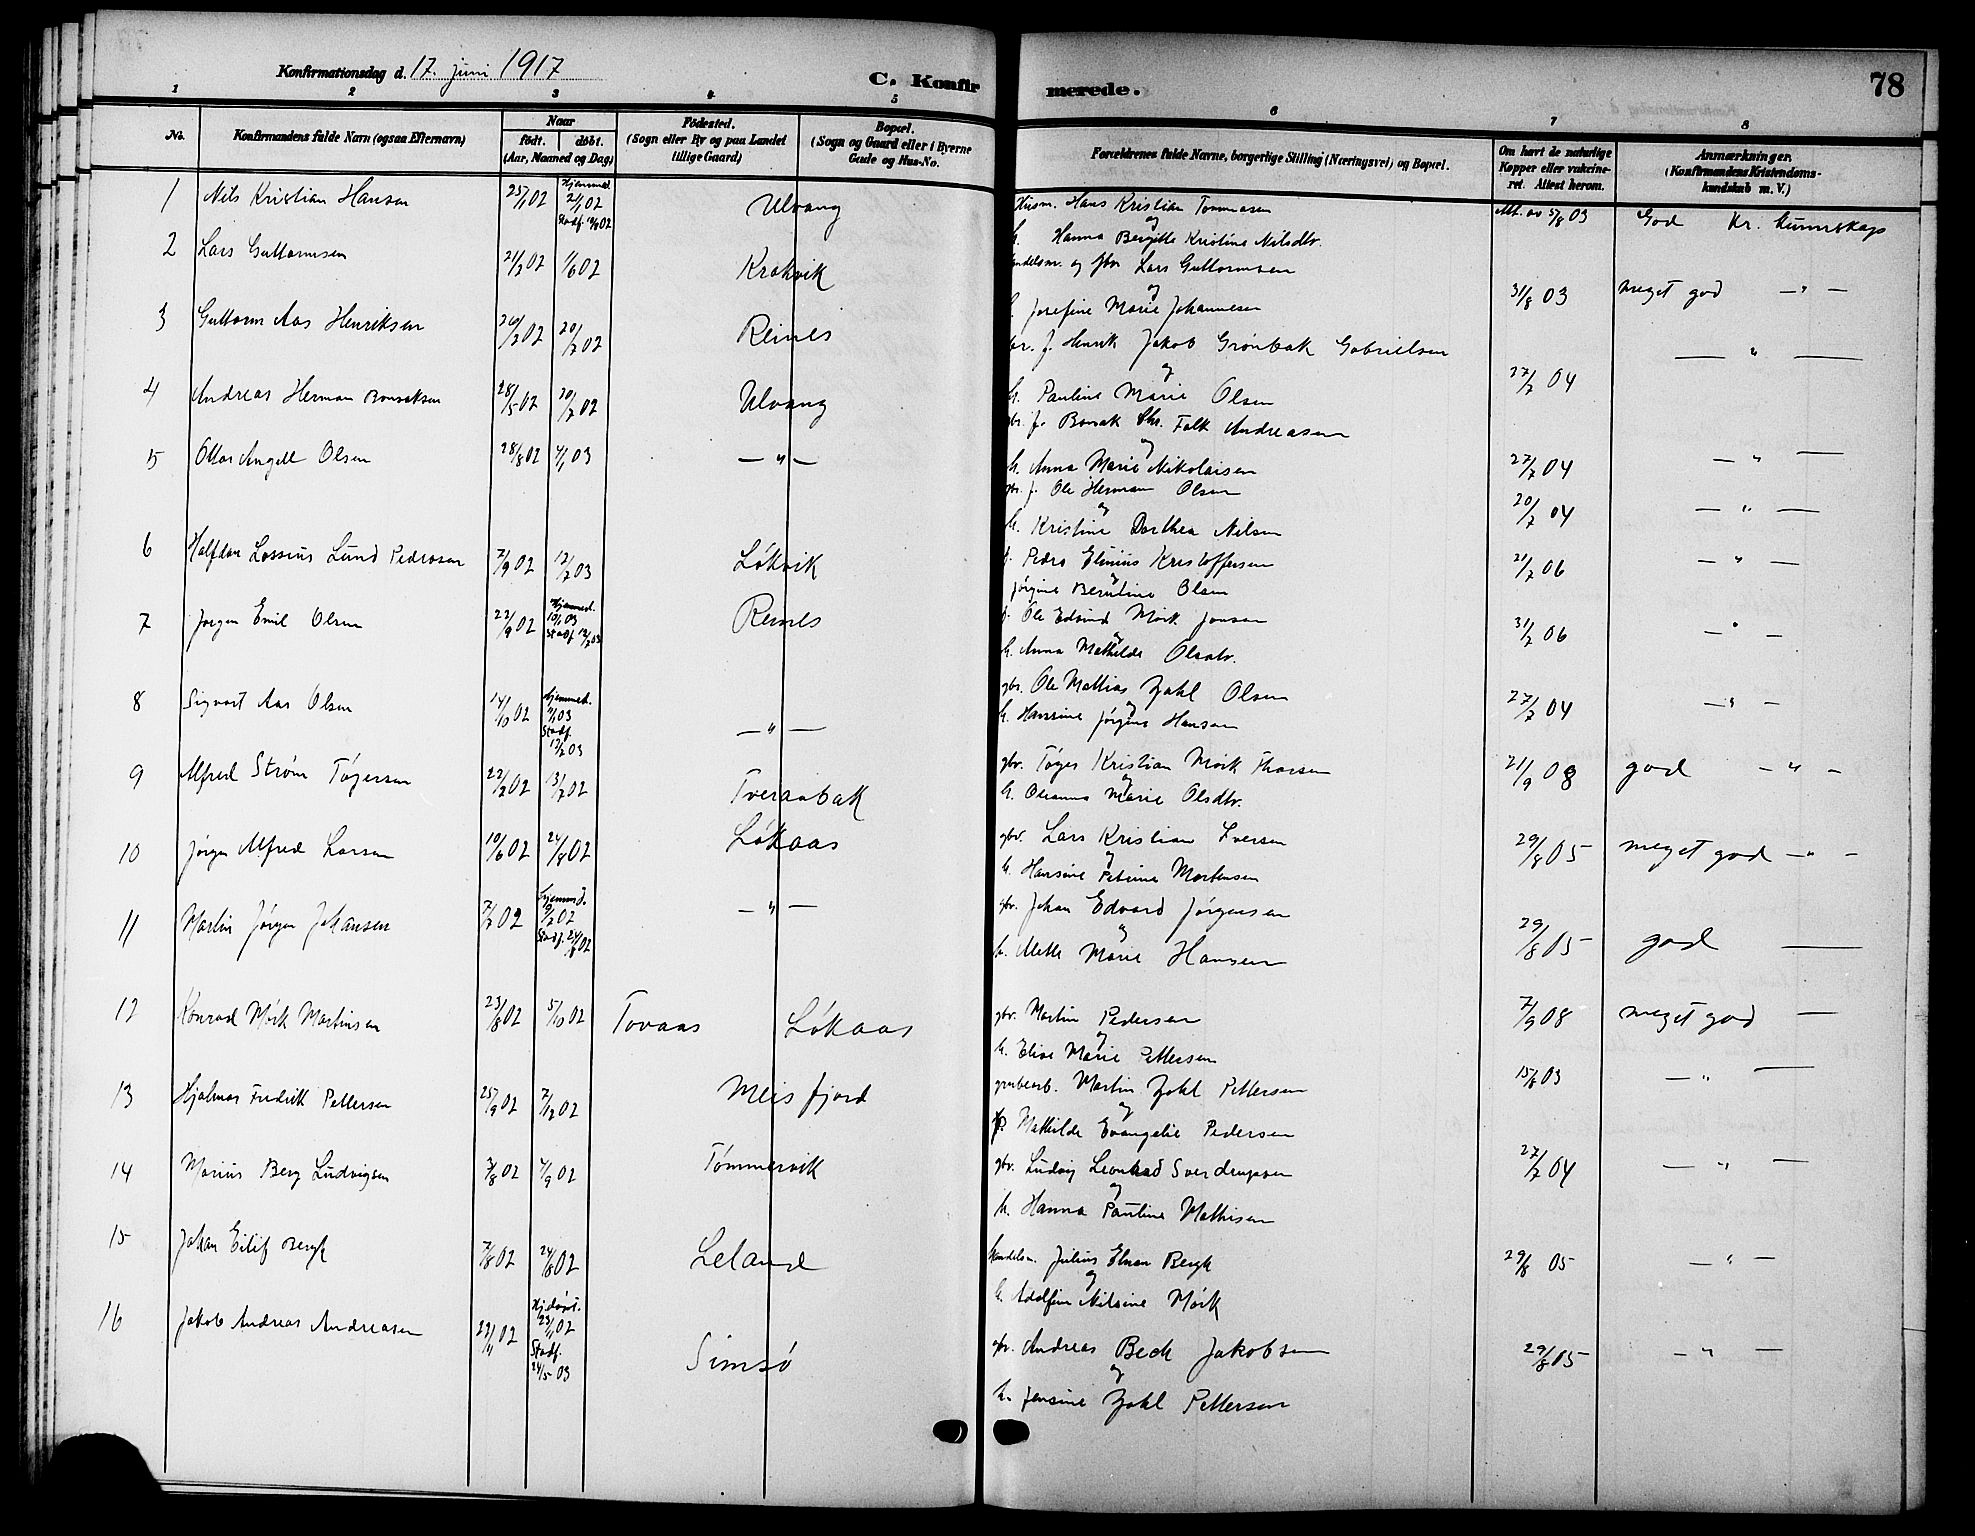 Konfirmationsdag d. 17. juni 1917
C. Konfirmerede.
78
1 2 3 4 5 6 7 8
No.
Konfirmandens fulde Navn (ogsaa Efternavn)
Naar
födt. döbt.
(Aar, Maaned og Dag)
Födested.
(Sogn eller By og paa Landet tillige Gaard)
Bopæl.
(Sogn og Gaard eller i Byerne Gade og Hus-No.
Forældrenes fulde Navne, borgerlige Stilling (Næringsvei) og Bopæl.
Om havt de naturlige Kopper eller vaccineret. Attest herom.
Anmærkninger.
(Konfirmandens Kristendomskundskab m. V.)
1 Nils Kristian Hansen 25/1 02 Hjemmed. 2/1 02 Stadf. Ulvang Husm. Hans Kristian Tommasen og h. Hanna Bergitte Kristine Nilsdtr. Att. av 5/8 03 God Kr. kunnskap
2 Lars Guttormsen 21/2 02 1/6 02 Krokvik handelsm. og gbr Lars Guttormsen og h. Josefine Marie Johannesen 31/8 03 meget god — " —
3 Guttorm Aas Henriksen 26/2 02 20/7 02 Reines gbr. f. Henrik Jakob Grønbæk Gabrielsen og h. Pauline Marie Olsen 27/7 04 — " —
4 Andreas Herman Bonsaksen 28/5 02 20/7 02 Ulvang gbr. f. Bonsak Chr. Falk Andreasen og h. Anna Marie Nikolaisen 27/7 04 — " —
5 Ottar Angell Olsen 28/8 02 4/1 03 — " — gbr. f. Ole Herman Olsen og h. Kristine Dorthea Nilsen 20/7 04 — " —
6 Halfdan Lossius Lund Pedersen 7/9 02 12/7 03 Løkvik f. Peder Elinius Kristoffersen og Jørgine Berntine Olsen 21/7 06 — " —
7 Jørgen Emil Olsen 22/9 02 Hjemmed. 10/1 03 Stadf. 12/7 03 Reines f. Ole Edvind Mørk Jonsen og h. Anna Mathilde Olsdtr. 31/7 06 — " —
8 Sigvart Aas Olsen 14/10 02 Hjemmed. 03 Stadf. 12/7 03 — " — gbr. Ole Mathias Zahl Olsen og h. Hansine Jørgine Hansen 27/7 04 — " —
9 Alfred Strøm Tøgersen 22/2 02 13/7 02 Tveraabak gbr. Tøger Kristian Mørk Thorsen og h. Oleanna Marie Olsdtr. 21/9 08 god — " —
10 Jørgen Alfred Larsen 10/6 02 24/8 02 Løkaas gbr. Lars Kristian Iversen og h. Hansine Petrine Mortensen 29/8 05 meget god — " —
11 Martin Jørgen Johansen 7/7 02 hjemmed. 9/7 02 Stadf. 24/8 02 — " — gbr. Johan Edvard Jørgensen og h. Mette Marie Hansen 29/8 05 god —
12 Konrad Mørk Martinsen 23/8 02 5/10 02 Tovaas Løkaas gbr. Martin Pedersen og h. Elise Marie Pettersen 7/9 08 meget god —
13 Hjalmar Fredrik Pettersen 25/9 02 7/12 02 Meisfjord grubearb. Martin Zahl Pettersen og h. Mathilde Evangelie Pedersen 15/8 03 — " —
14 Marius Berg Ludvigsen 3/8 02 4/9 02 Tømmervik gbr. Ludvig Leonhard Sverdrupsen og h. Hanna Pauline Mathisen 27/7 04 — " —
15 Johan Eilif Bergh 7/8 02 24/8 02 Leland handelsm. Julius Elnan Bergh og h. Adolfine Nilsine Mørk 29/8 05 — " —
16 Jakob Andreas Andreasen 22/11 02 Hj.døbt. 23/11 02 Stadf. 24/5 03 Simsø gbr. Andreas Beck Jakobsen og h. Jensine Zahl Pettersen 29/8 05 — " —